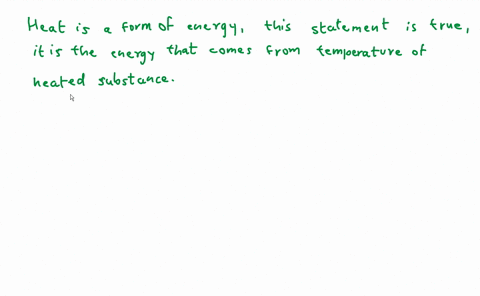 Heat is a form of energy, this statement is true,
it is the energy that comes from temperature of
heated substance.